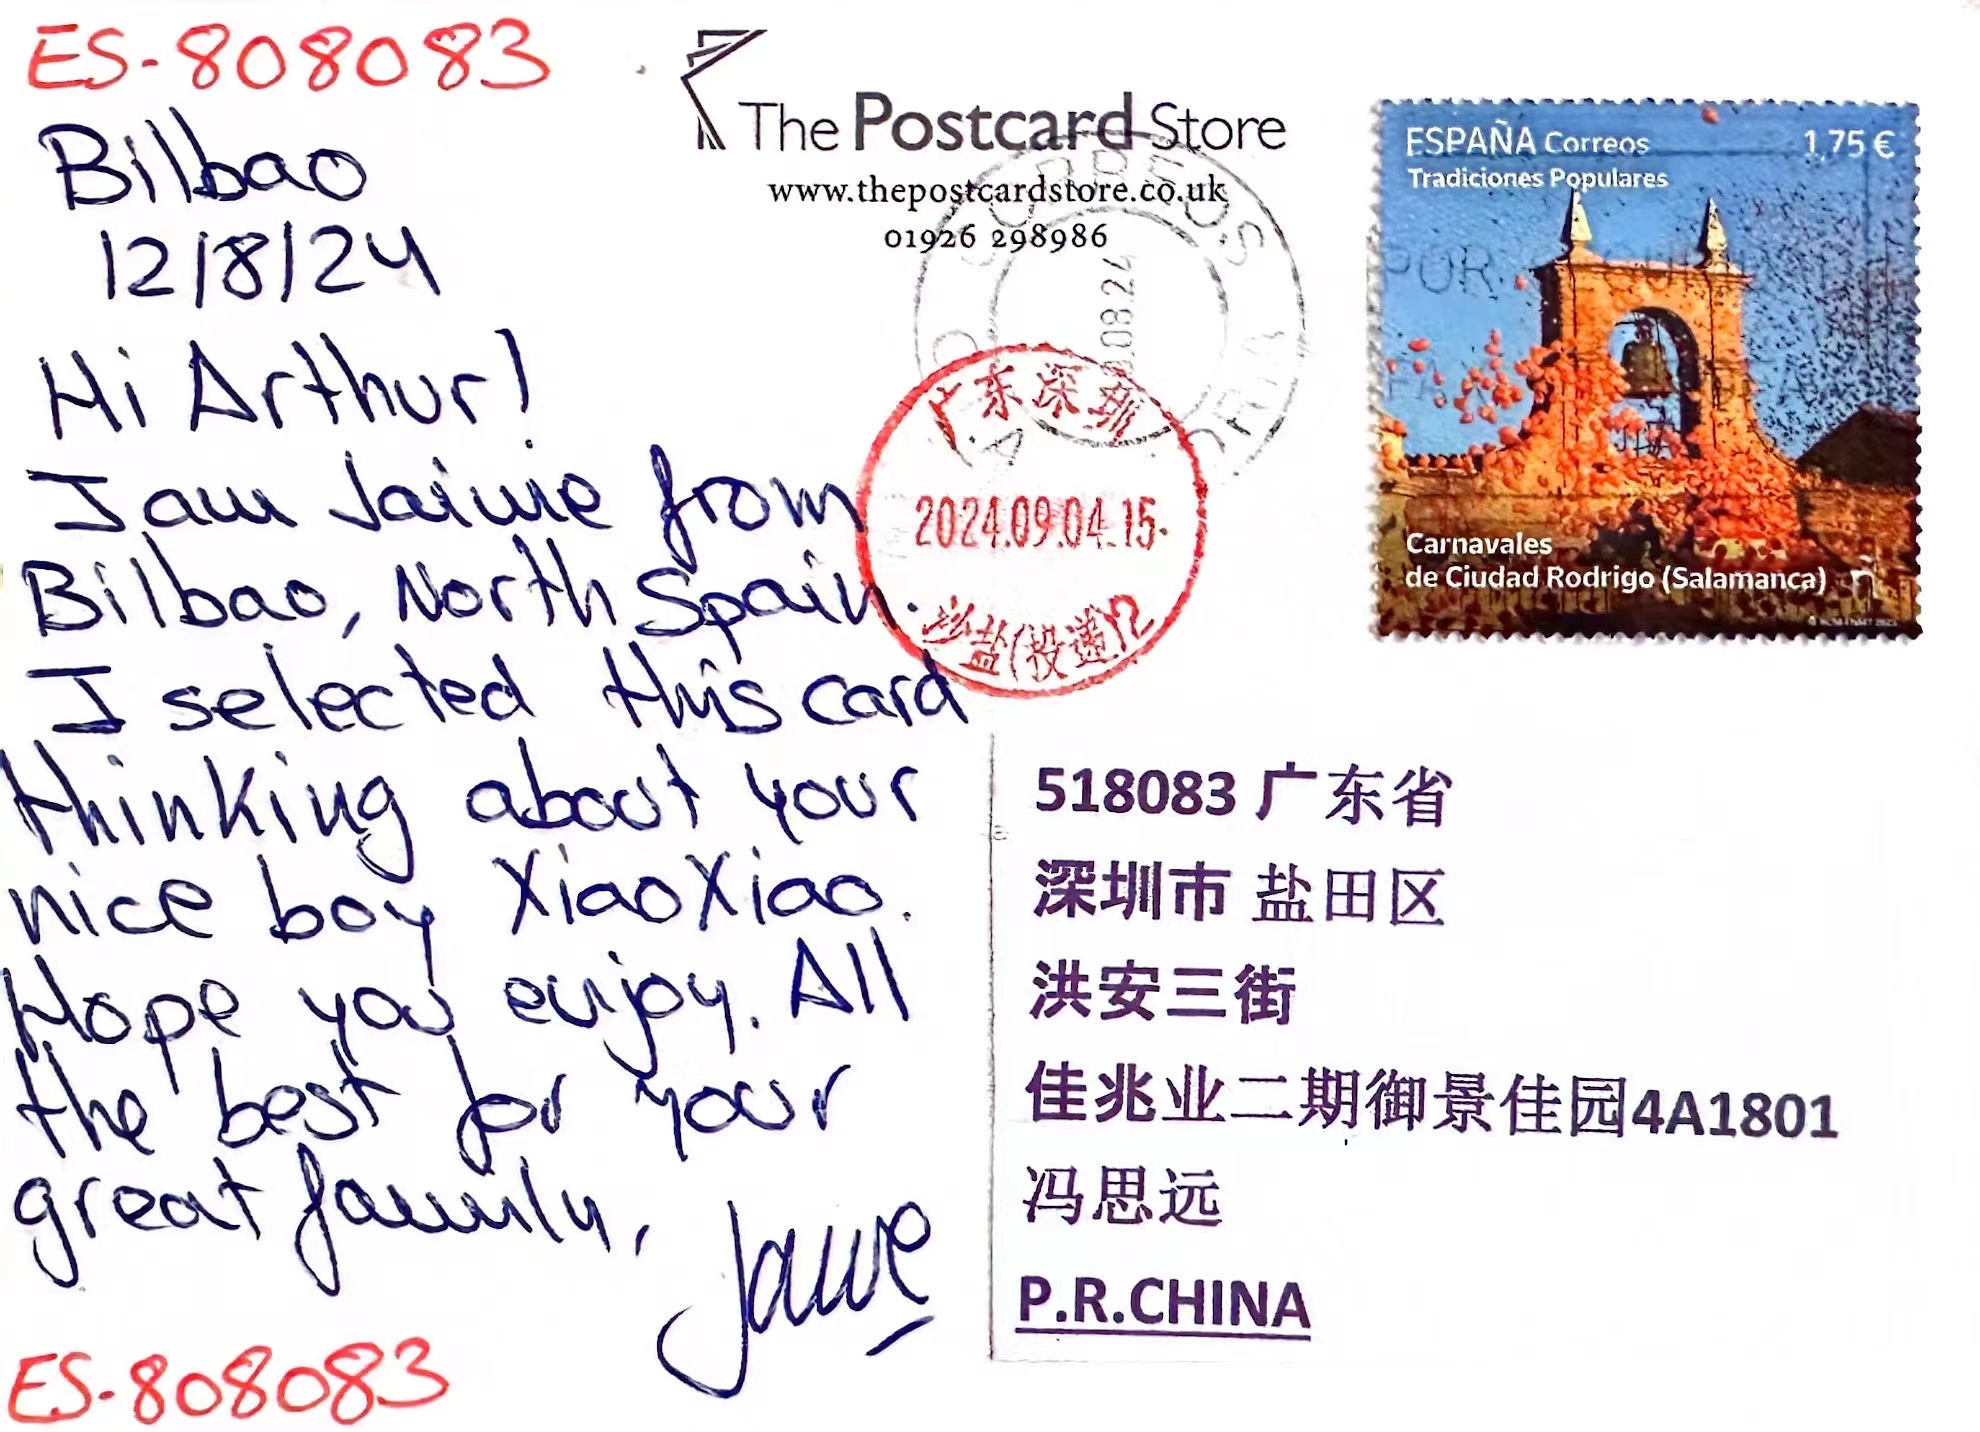 ES-808083
Bilbao
12/8/24
Hi Arthur!
I am Jaime from
Bilbao, North Spain.
I selected this card
thinking about your
nice boy XiaoXiao.
Hope you enjoy. All
the best for your
great family,
Jaime
ES-808083
The Postcard Store
www.thepostcardstore.co.uk
01926 298986
CORREOS
08.24
广东深圳
2024.09.04.15
沙盐(投递)2
ESPAÑA Correos
1,75 €
Tradiciones Populares
Carnavales
de Ciudad Rodrigo (Salamanca)
518083 广东省
深圳市 盐田区
洪安三街
佳兆业二期御景佳园4A1801
冯思远
P.R.CHINA